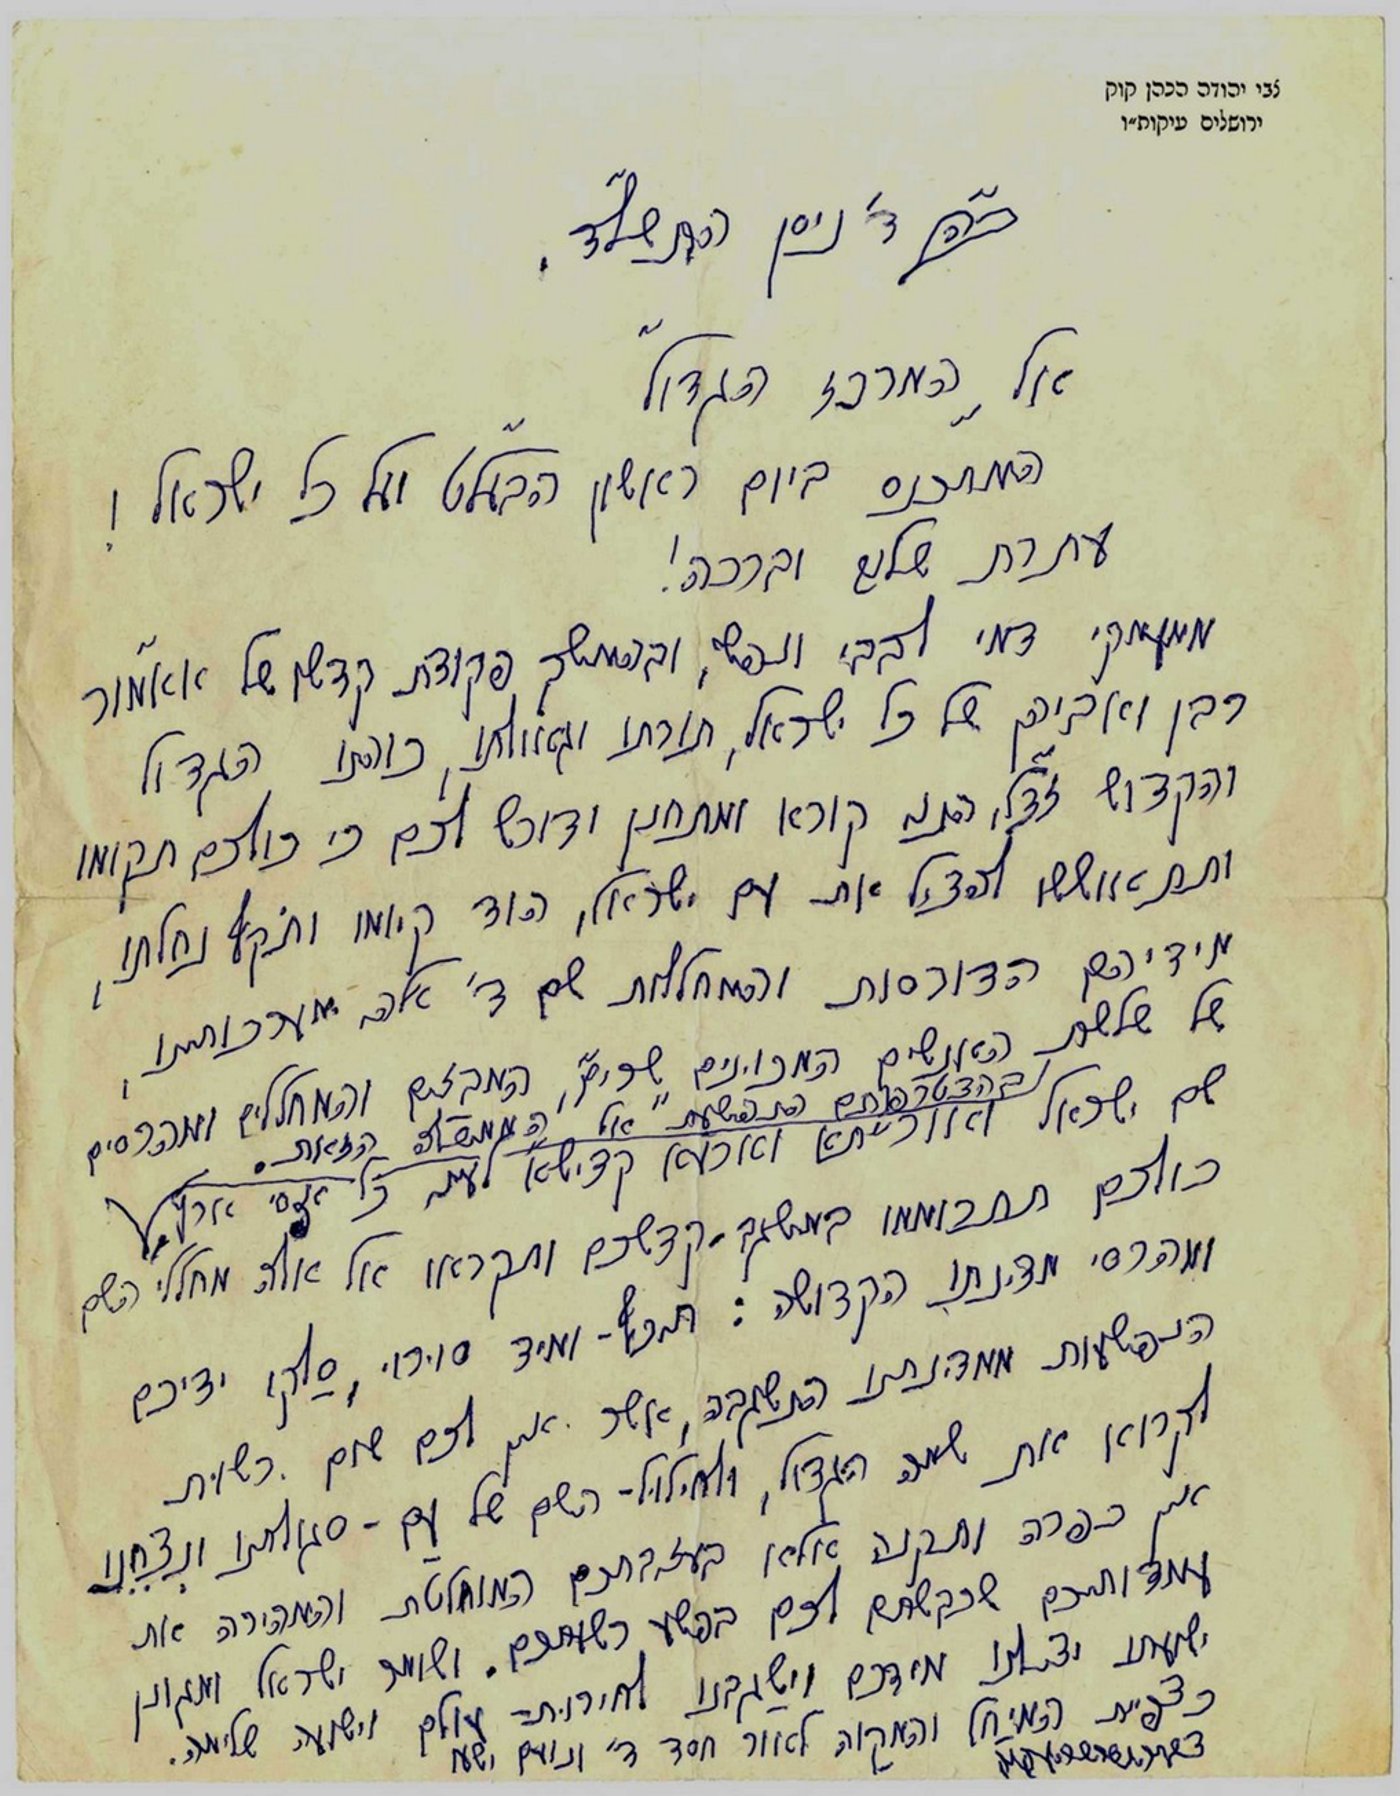 צבי יהודה הכהן קוק
ירושלים עיקות״ו
ב״ה ד׳ ניסן התשל״ד.
אל המרכז הגדול
המתכנס ביום ראשון הבעל״ט ועל כל ישראל!
עתרת שלום וברכה!
ממעמקי דמי לבבי ונפשי, ובהמשך פקודת קדשו של אאמו״ר
רבן ואביהן של כל ישראל, תורתו וגאולתו, כוהנו הגדול
והקדוש זצ״ל, הנני קורא ומתחנן ודורש לכם כי כולכם תקומו
ותתאוששו להציל את עם ישראל, הוד קיומו ותוקף נחלתו,
מידיהם הדורסות והמחללות שם ד׳ אלהי מערכותינו,
של שלשת האנשים המכוונים שרים, המבזים והמחללים ומהרסים
ובהצטרפותם הנפשעת אל הממשלה הזאת.
שם ישראל ואורייתא וארעא קדישא לעיני כל אפסי ארץ
כולכם תתרוממו במשגב-קדשכם ותקראו אל אלה מחללי השם
ומהרסי מדינתנו הקדושה: תיכף-ומיד סורו, סלקו ידיכם
הנפשעות ממדינתנו הנשגבה, אשר אין לכם שום רשות
לקרוא את שמה הגדול, ולחילול-השם של עם-סגולתנו ונצחנו
אין כפרה ותקנה אלא בעזיבתכם המוחלטת והמהירה את
עמדותיכם שרכשתם לכם בפשע רשעתכם. ושומר ישראל ומגונן
ישענו יצילנו מידכם וישגבנו לחירות-עולם וישועה שלימה.
כצפיית המיחל והמקוה לאור חסד ד׳ ונועם ישעו